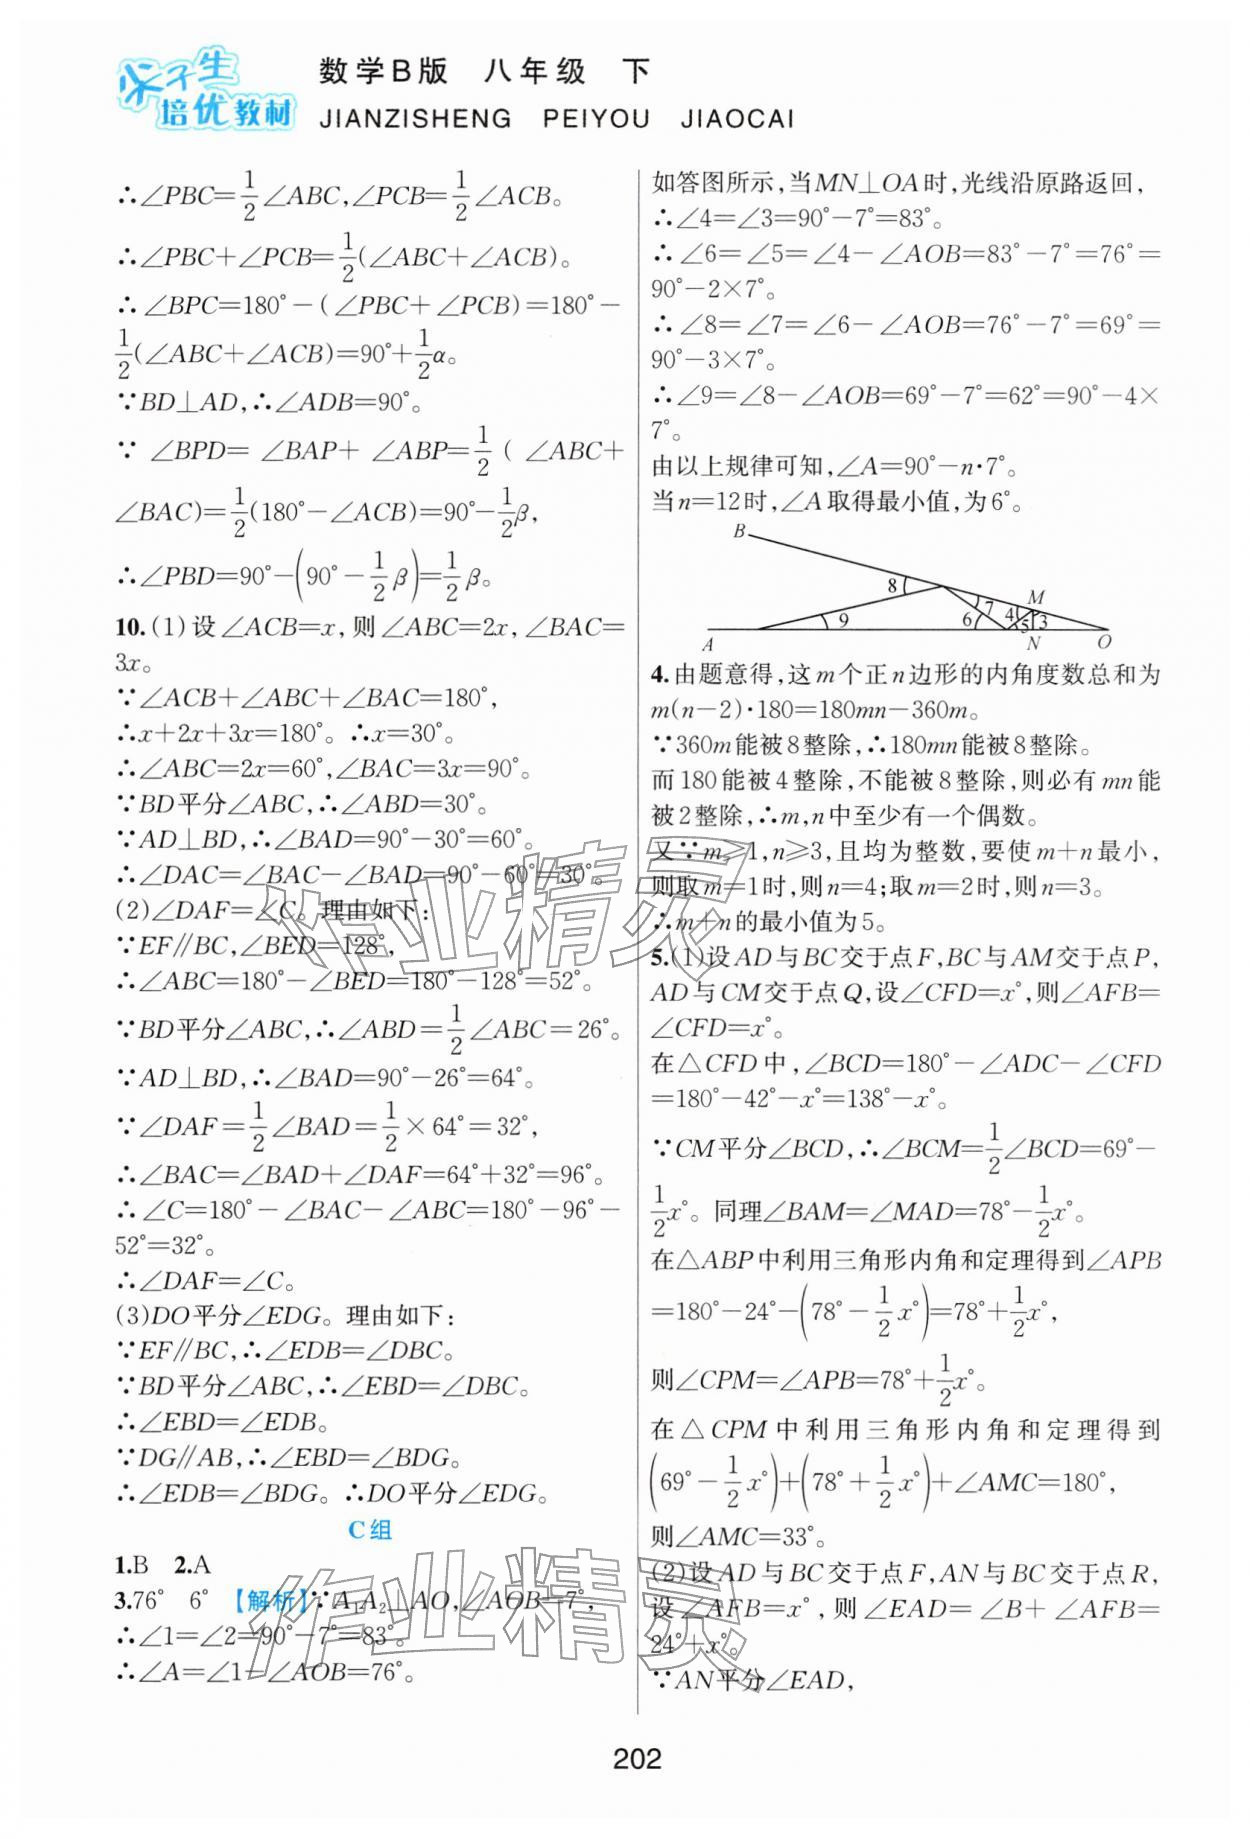 尖子生
培优教材
数学B版 八年级 下
JIANZISHENG PEIYOU JIAOCAI
∴∠PBC=1/2∠ABC,∠PCB=1/2∠ACB。
∴∠PBC+∠PCB=1/2(∠ABC+∠ACB)。
∴∠BPC=180°-(∠PBC+∠PCB)=180°-
1/2(∠ABC+∠ACB)=90°+1/2α。
∵BD⊥AD,∴∠ADB=90°。
∵∠BPD=∠BAP+∠ABP=1/2(∠ABC+
∠BAC)=1/2(180°-∠ACB)=90°-1/2β,
∴∠PBD=90°-(90°-1/2β)=1/2β。
10.(1)设∠ACB=x,则∠ABC=2x,∠BAC=
3x。
∵∠ACB+∠ABC+∠BAC=180°,
∴x+2x+3x=180°。∴x=30°。
∴∠ABC=2x=60°,∠BAC=3x=90°。
∵BD平分∠ABC,∴∠ABD=30°。
∵AD⊥BD,∴∠BAD=90°-30°=60°。
∴∠DAC=∠BAC-∠BAD=90°-60°=30°。
(2)∠DAF=∠C。理由如下:
∵EF∥BC,∠BED=128°,
∴∠ABC=180°-∠BED=180°-128°=52°。
∵BD平分∠ABC,∴∠ABD=1/2∠ABC=26°。
∵AD⊥BD,∴∠BAD=90°-26°=64°。
∵∠DAF=1/2∠BAD=1/2×64°=32°,
∴∠BAC=∠BAD+∠DAF=64°+32°=96°。
∴∠C=180°-∠BAC-∠ABC=180°-96°-
52°=32°。
∴∠DAF=∠C。
(3)DO平分∠EDG。理由如下:
∵EF∥BC,∴∠EDB=∠DBC。
∵BD平分∠ABC,∴∠EBD=∠DBC。
∴∠EBD=∠EDB。
∵DG∥AB,∴∠EBD=∠BDG。
∴∠EDB=∠BDG。∴DO平分∠EDG。
C组
1.B 2.A
3.76° 6° 【解析】∵A₁A₂⊥AO,∠AOB=7°,
∴∠1=∠2=90°-7°=83°。
∴∠A=∠1-∠AOB=76°。
如答图所示,当MN⊥OA时,光线沿原路返回,
∴∠4=∠3=90°-7°=83°。
∴∠6=∠5=∠4-∠AOB=83°-7°=76°=
90°-2×7°。
∴∠8=∠7=∠6-∠AOB=76°-7°=69°=
90°-3×7°。
∴∠9=∠8-∠AOB=69°-7°=62°=90°-4×
7°。
由以上规律可知,∠A=90°-n·7°。
当n=12时,∠A取得最小值,为6°。
B
8
7
M
9
6
4
5
3
A
N
O
4.由题意得,这m个正n边形的内角度数总和为
m(n-2)·180=180mn-360m。
∵360m能被8整除,∴180mn能被8整除。
而180能被4整除,不能被8整除,则必有mn能
被2整除,∴m,n中至少有一个偶数。
又∵m≥1,n≥3,且均为整数,要使m+n最小,
则取m=1时,则n=4;取m=2时,则n=3。
∴m+n的最小值为5。
5.(1)设AD与BC交于点F,BC与AM交于点P,
AD与CM交于点Q,设∠CFD=x°,则∠AFB=
∠CFD=x°。
在△CFD中,∠BCD=180°-∠ADC-∠CFD
=180°-42°-x°=138°-x°。
∵CM平分∠BCD,∴∠BCM=1/2∠BCD=69°-
1/2x°。同理∠BAM=∠MAD=78°-1/2x°。
在△ABP中利用三角形内角和定理得到∠APB
=180°-24°-(78°-1/2x°)=78°+1/2x°,
则∠CPM=∠APB=78°+1/2x°。
在△CPM中利用三角形内角和定理得到
(69°-1/2x°)+(78°+1/2x°)+∠AMC=180°,
则∠AMC=33°。
(2)设AD与BC交于点F,AN与BC交于点R,
设∠AFB=x°,则∠EAD=∠B+∠AFB=
24°+x°。
∵AN平分∠EAD,
作业精灵
作业精灵
202